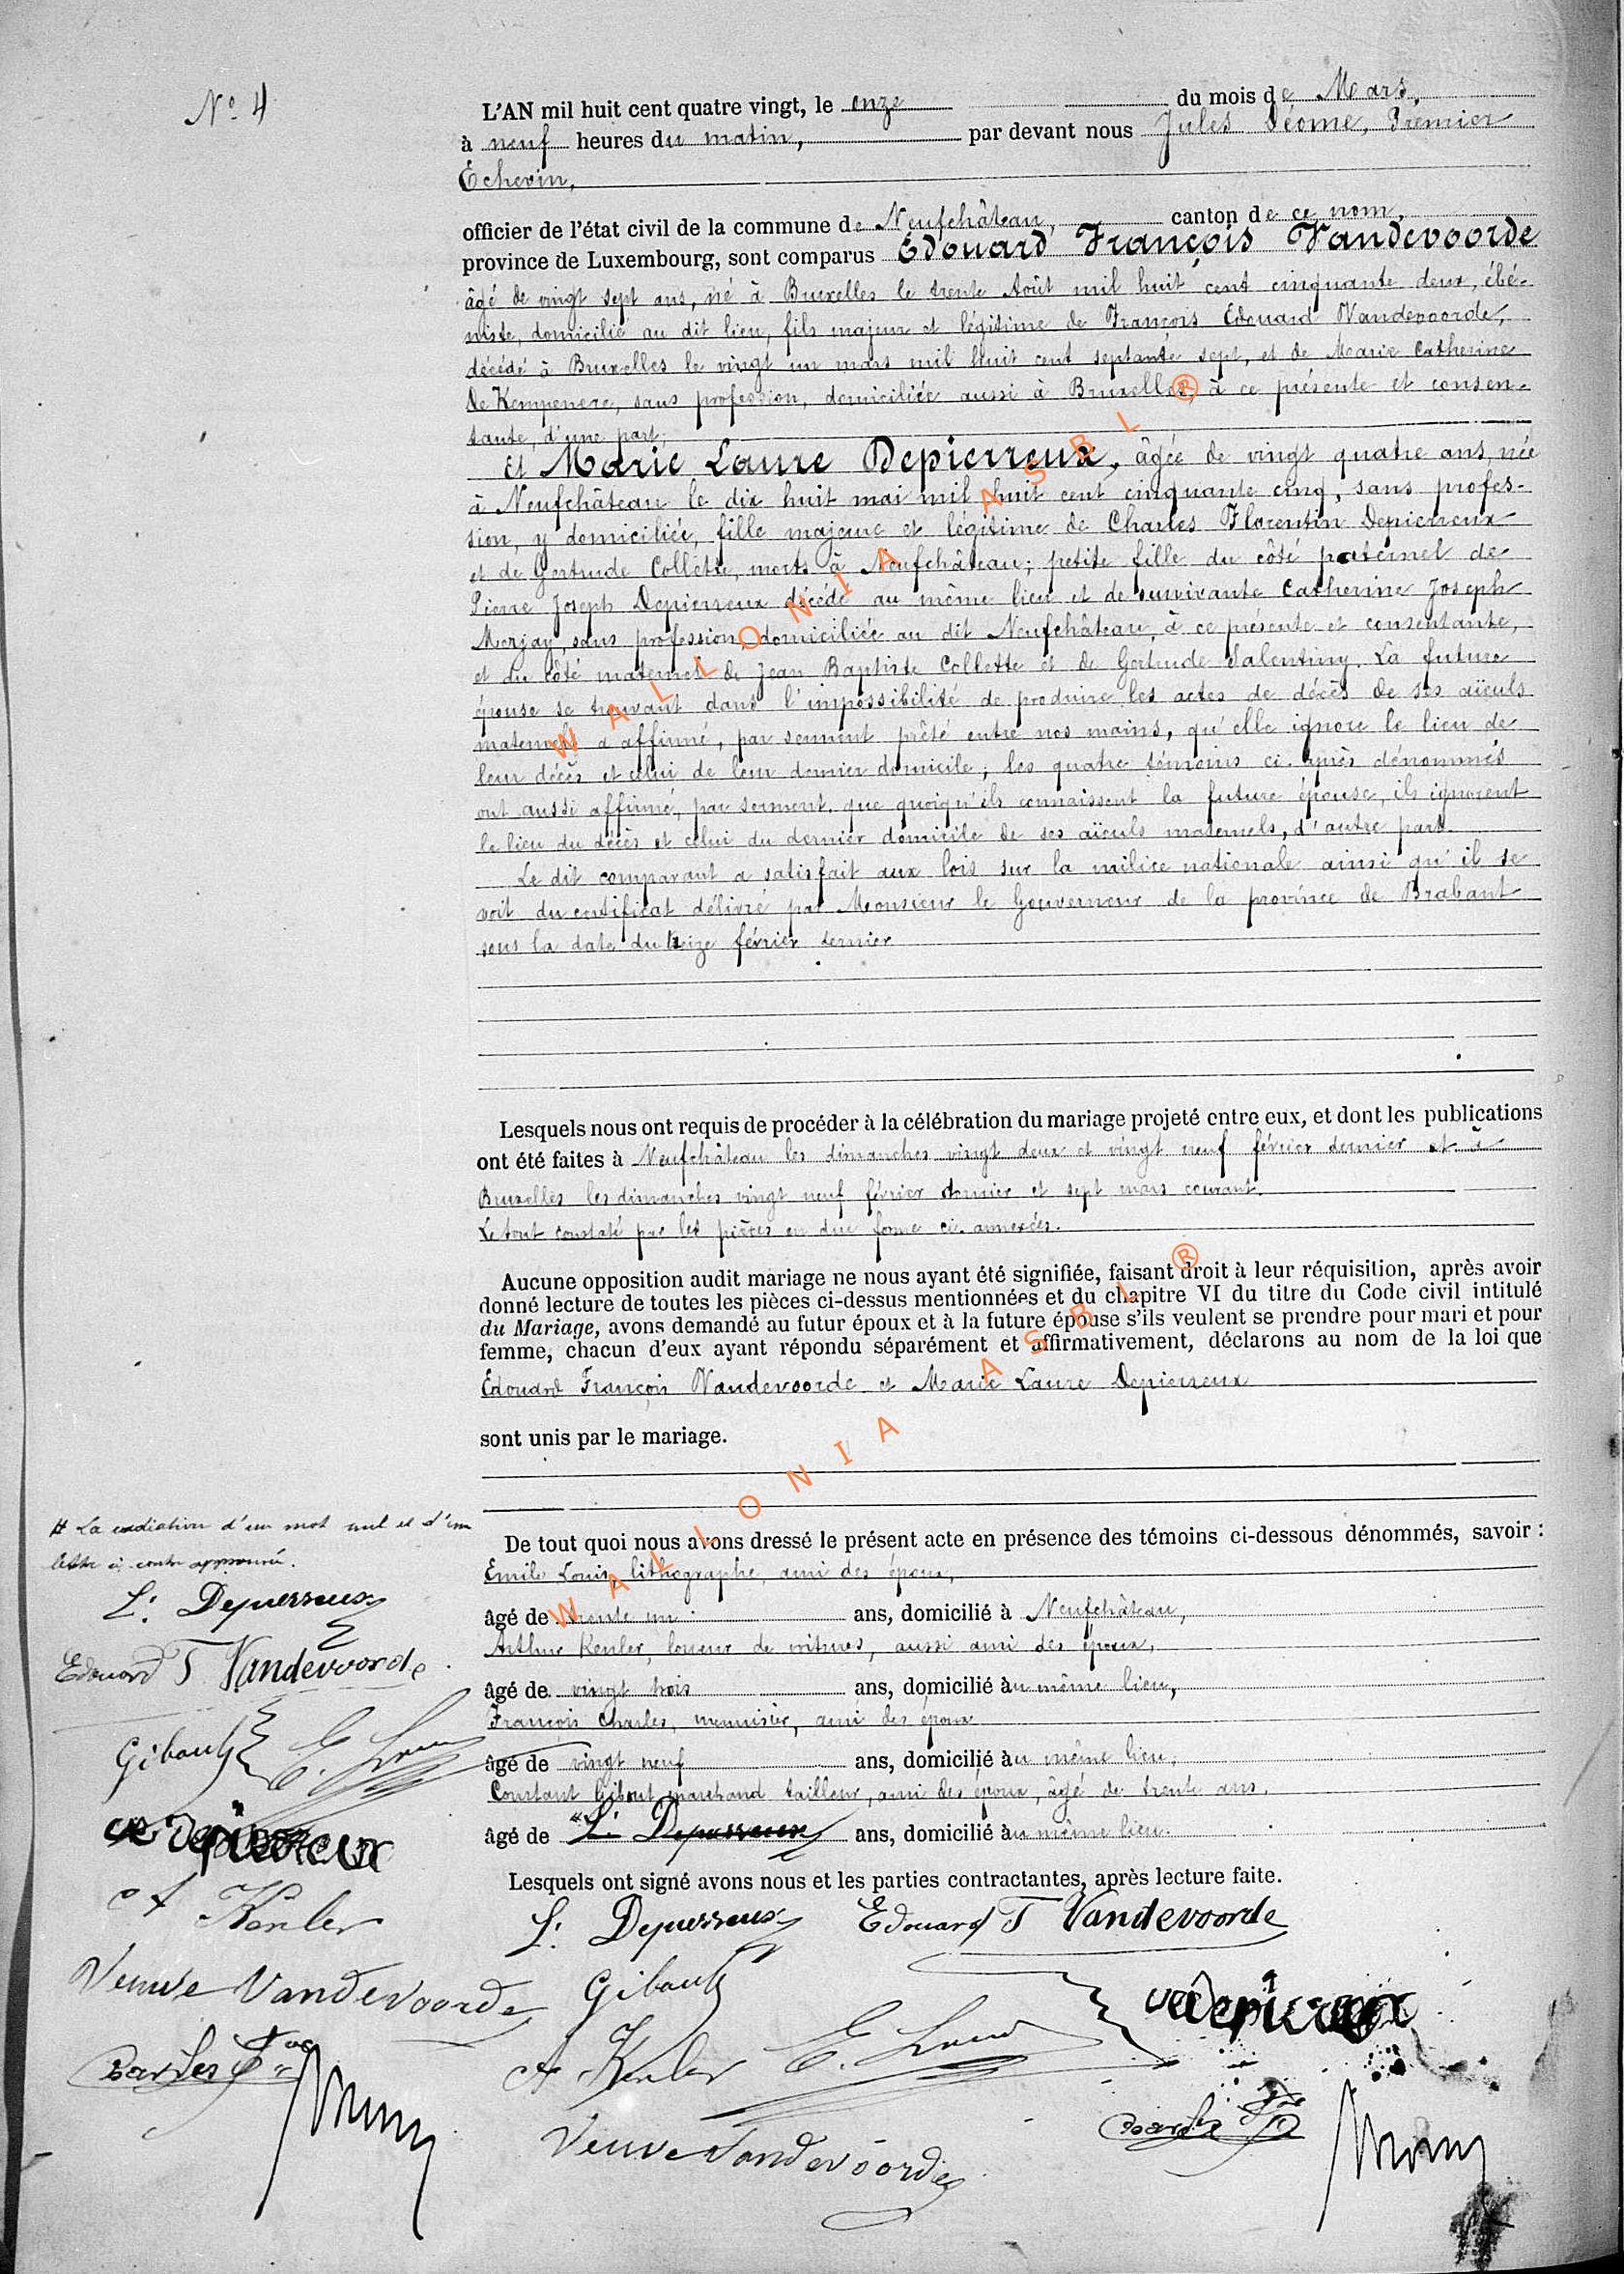 N° 4
L'AN mil huit cent quatre vingt, le onze du mois de Mars,
à neuf heures du matin, par devant nous Jules Déome, Premier
Echevin,
officier de l'état civil de la commune de Neufchâteau, canton de ce nom,
province de Luxembourg, sont comparus Edouard François Vandevoorde
âgé de vingt sept ans, né à Bruxelles le trente Août mil huit cent cinquante deux, ébé-
niste, domicilié au dit lieu, fils majeur et légitime de François Edouard Vandevoorde,
décédé à Bruxelles le vingt un mars mil huit cent septante sept, et de Marie Catherine
De Kempenere, sans profession, domiciliée aussi à Bruxelles, à ce présente et consen-
tante, d'une part;
Et Marie Laure Depierreux, âgée de vingt quatre ans, née
à Neufchâteau le dix huit mai mil huit cent cinquante cinq, sans profes-
sion, y domiciliée, fille majeure et légitime de Charles Florentin Depierreux
et de Gertrude Collette, morts à Neufchâteau; petite fille du côté paternel de
Pierre Joseph Depierreux décédé au même lieu et de survivante Catherine Joseph
Merjay, sans profession, domiciliée au dit Neufchâteau, à ce présente et consentante,
et du côté maternel de Jean Baptiste Collette et de Gertrude Salentiny. La future
épouse se trouvant dans l'impossibilité de produire les actes de décès de ses aïeuls
maternels a affirmé, par serment prêté entre nos mains, qu'elle ignore le lieu de
leur décès et celui de leur dernier domicile; les quatre témoins ci-après dénommés
ont aussi affirmé, par serment, que quoiqu'ils connaissent la future épouse, ils ignorent
le lieu du décès et celui du dernier domicile de ses aïeuls maternels, d'autre part.
Le dit comparant a satisfait aux lois sur la milice nationale ainsi qu'il se
voit du certificat délivré par Monsieur le Gouverneur de la province de Brabant
sous la date du treize février dernier
Lesquels nous ont requis de procéder à la célébration du mariage projeté entre eux, et dont les publications
ont été faites à Neufchâteau les dimanches vingt deux et vingt neuf février dernier et à
Bruxelles les dimanches vingt neuf février dernier et sept mars courant.
Le tout constaté par les pièces en due forme ci-annexées.
Aucune opposition audit mariage ne nous ayant été signifiée, faisant droit à leur réquisition, après avoir
donné lecture de toutes les pièces ci-dessus mentionnées et du chapitre VI du titre du Code civil intitulé
du Mariage, avons demandé au futur époux et à la future épouse s'ils veulent se prendre pour mari et pour
femme, chacun d'eux ayant répondu séparément et affirmativement, déclarons au nom de la loi que
Edouard François Vandevoorde et Marie Laure Depierreux
sont unis par le mariage.
De tout quoi nous avons dressé le présent acte en présence des témoins ci-dessous dénommés, savoir :
Emile Louis, lithographe, ami des époux,
âgé de trente un ans, domicilié à Neufchâteau,
Arthur Kenler, loueur de voitures, aussi ami des époux,
âgé de vingt trois ans, domicilié au même lieu,
François Charles, menuisier, ami des époux
âgé de vingt neuf ans, domicilié au même lieu,
Constant Gibout marchand tailleur, ami des époux, âgé de trente ans,
âgé de L. Depierreux ans, domicilié au même lieu.
Lesquels ont signé avons nous et les parties contractantes, après lecture faite.
L. Depierreux Edouard F Vandevoorde
Gibout ve depierreux
A Kenler E. Louis
Veuve Vandevoorde
Charles Fçois
# La radiation d'un mot nul et d'une
lettre ci-contre approuvée.
L. Depierreux
Edouard F Vandevoorde
Gibout E. Louis
ve depierreux
A Kenler
Veuve Vandevoorde
Charles Fçois
WALLONIA ASBL ®
WALLONIA ASBL ®